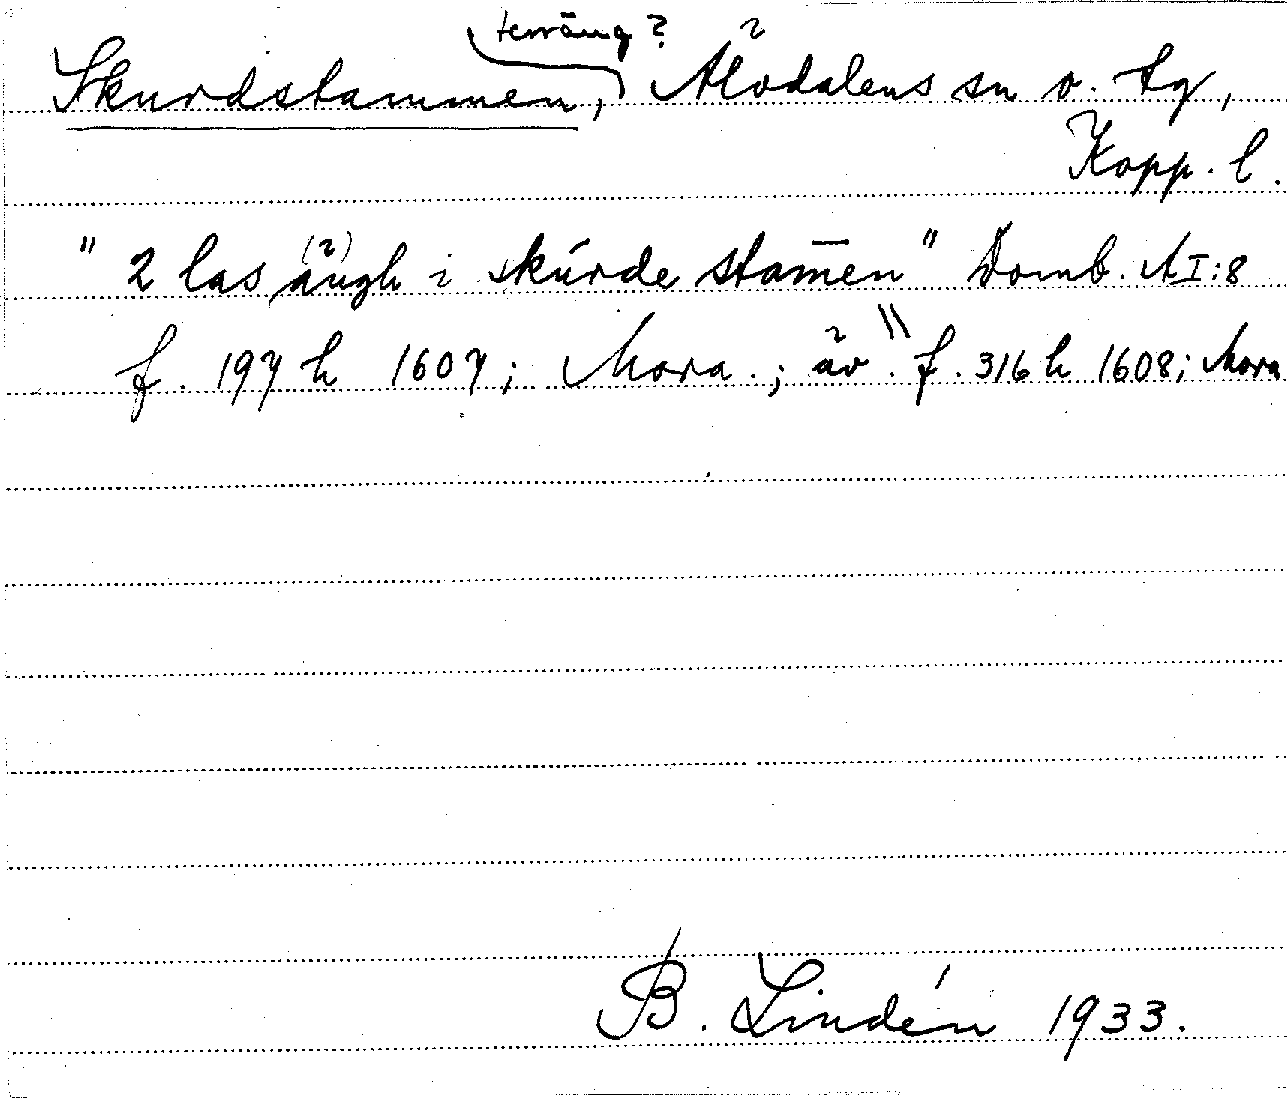 terräng?
Skurdstammen, Älvdalens sn o. tg,
Kopp. l.
" 2 las ängh (?) i skurde stam̄en" Domb. AI:8
f. 197 h 1607; Mora.; äv. " f. 316 h 1608; Mora
B. Lindén 1933.